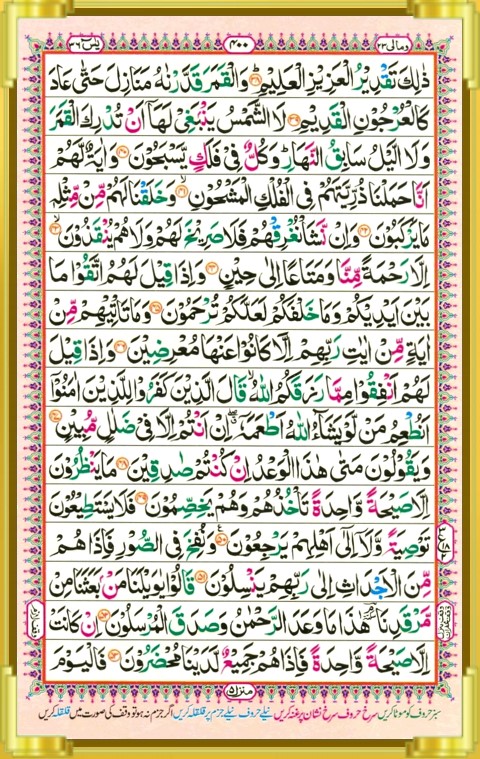 یٰسٓ ۳۶ ۴۰۰ ومالی ۲۳
ذٰلِكَ تَقْدِیْرُ الْعَزِیْزِ الْعَلِیْمِ ؕ۳۸ وَالْقَمَرَ قَدَّرْنٰهُ مَنَازِلَ حَتّٰی عَادَ
كَالْعُرْجُوْنِ الْقَدِیْمِ ۳۹ لَا الشَّمْسُ یَنْۢبَغِیْ لَهَاۤ اَنْ تُدْرِكَ الْقَمَرَ
وَلَا الَّیْلُ سَابِقُ النَّهَارِ ؕ وَكُلٌّ فِیْ فَلَكٍ یَّسْبَحُوْنَ ۴۰ وَاٰیَةٌ لَّهُمْ
اَنَّا حَمَلْنَا ذُرِّیَّتَهُمْ فِی الْفُلْكِ الْمَشْحُوْنِ ۙ۴۱ وَخَلَقْنَا لَهُمْ مِّنْ مِّثْلِهٖ
مَا یَرْكَبُوْنَ ۴۲ وَاِنْ نَّشَاْ نُغْرِقْهُمْ فَلَا صَرِیْخَ لَهُمْ وَلَا هُمْ یُنْقَذُوْنَ ۙ۴۳
اِلَّا رَحْمَةً مِّنَّا وَمَتَاعًا اِلٰی حِیْنٍ ۴۴ وَاِذَا قِیْلَ لَهُمُ اتَّقُوْا مَا
بَیْنَ اَیْدِیْكُمْ وَمَا خَلْفَكُمْ لَعَلَّكُمْ تُرْحَمُوْنَ ۴۵ وَمَا تَاْتِیْهِمْ مِّنْ
اٰیَةٍ مِّنْ اٰیٰتِ رَبِّهِمْ اِلَّا كَانُوْا عَنْهَا مُعْرِضِیْنَ ۴۶ وَاِذَا قِیْلَ
لَهُمْ اَنْفِقُوْا مِمَّا رَزَقَكُمُ اللّٰهُ ۙ قَالَ الَّذِیْنَ كَفَرُوْا لِلَّذِیْنَ اٰمَنُوْۤا
اَنُطْعِمُ مَنْ لَّوْ یَشَآءُ اللّٰهُ اَطْعَمَهٗۤ ۖ اِنْ اَنْتُمْ اِلَّا فِیْ ضَلٰلٍ مُّبِیْنٍ ۴۷
وَیَقُوْلُوْنَ مَتٰی هٰذَا الْوَعْدُ اِنْ كُنْتُمْ صٰدِقِیْنَ ۴۸ مَا یَنْظُرُوْنَ
اِلَّا صَیْحَةً وَّاحِدَةً تَاْخُذُهُمْ وَهُمْ یَخِصِّمُوْنَ ۴۹ فَلَا یَسْتَطِیْعُوْنَ
تَوْصِیَةً وَّلَاۤ اِلٰۤی اَهْلِهِمْ یَرْجِعُوْنَ ۵۰ وَنُفِخَ فِی الصُّوْرِ فَاِذَا هُمْ
مِّنَ الْاَجْدَاثِ اِلٰی رَبِّهِمْ یَنْسِلُوْنَ ۵۱ قَالُوْا یٰوَیْلَنَا مَنْۢ بَعَثَنَا مِنْ
مَّرْقَدِنَا هٰذَا مَا وَعَدَ الرَّحْمٰنُ وَصَدَقَ الْمُرْسَلُوْنَ ۵۲ اِنْ كَانَتْ
اِلَّا صَیْحَةً وَّاحِدَةً فَاِذَا هُمْ جَمِیْعٌ لَّدَیْنَا مُحْضَرُوْنَ ۵۳ فَالْیَوْمَ
منزل ۵
سبز حروف کو موٹا کریں سرخ حروف سرخ نشان پر غنہ کریں نیلے حروف نیلے جزم پر قلقلہ کریں اگر جزم نہ ہو تو وقف کی صورت میں قلقلہ کریں